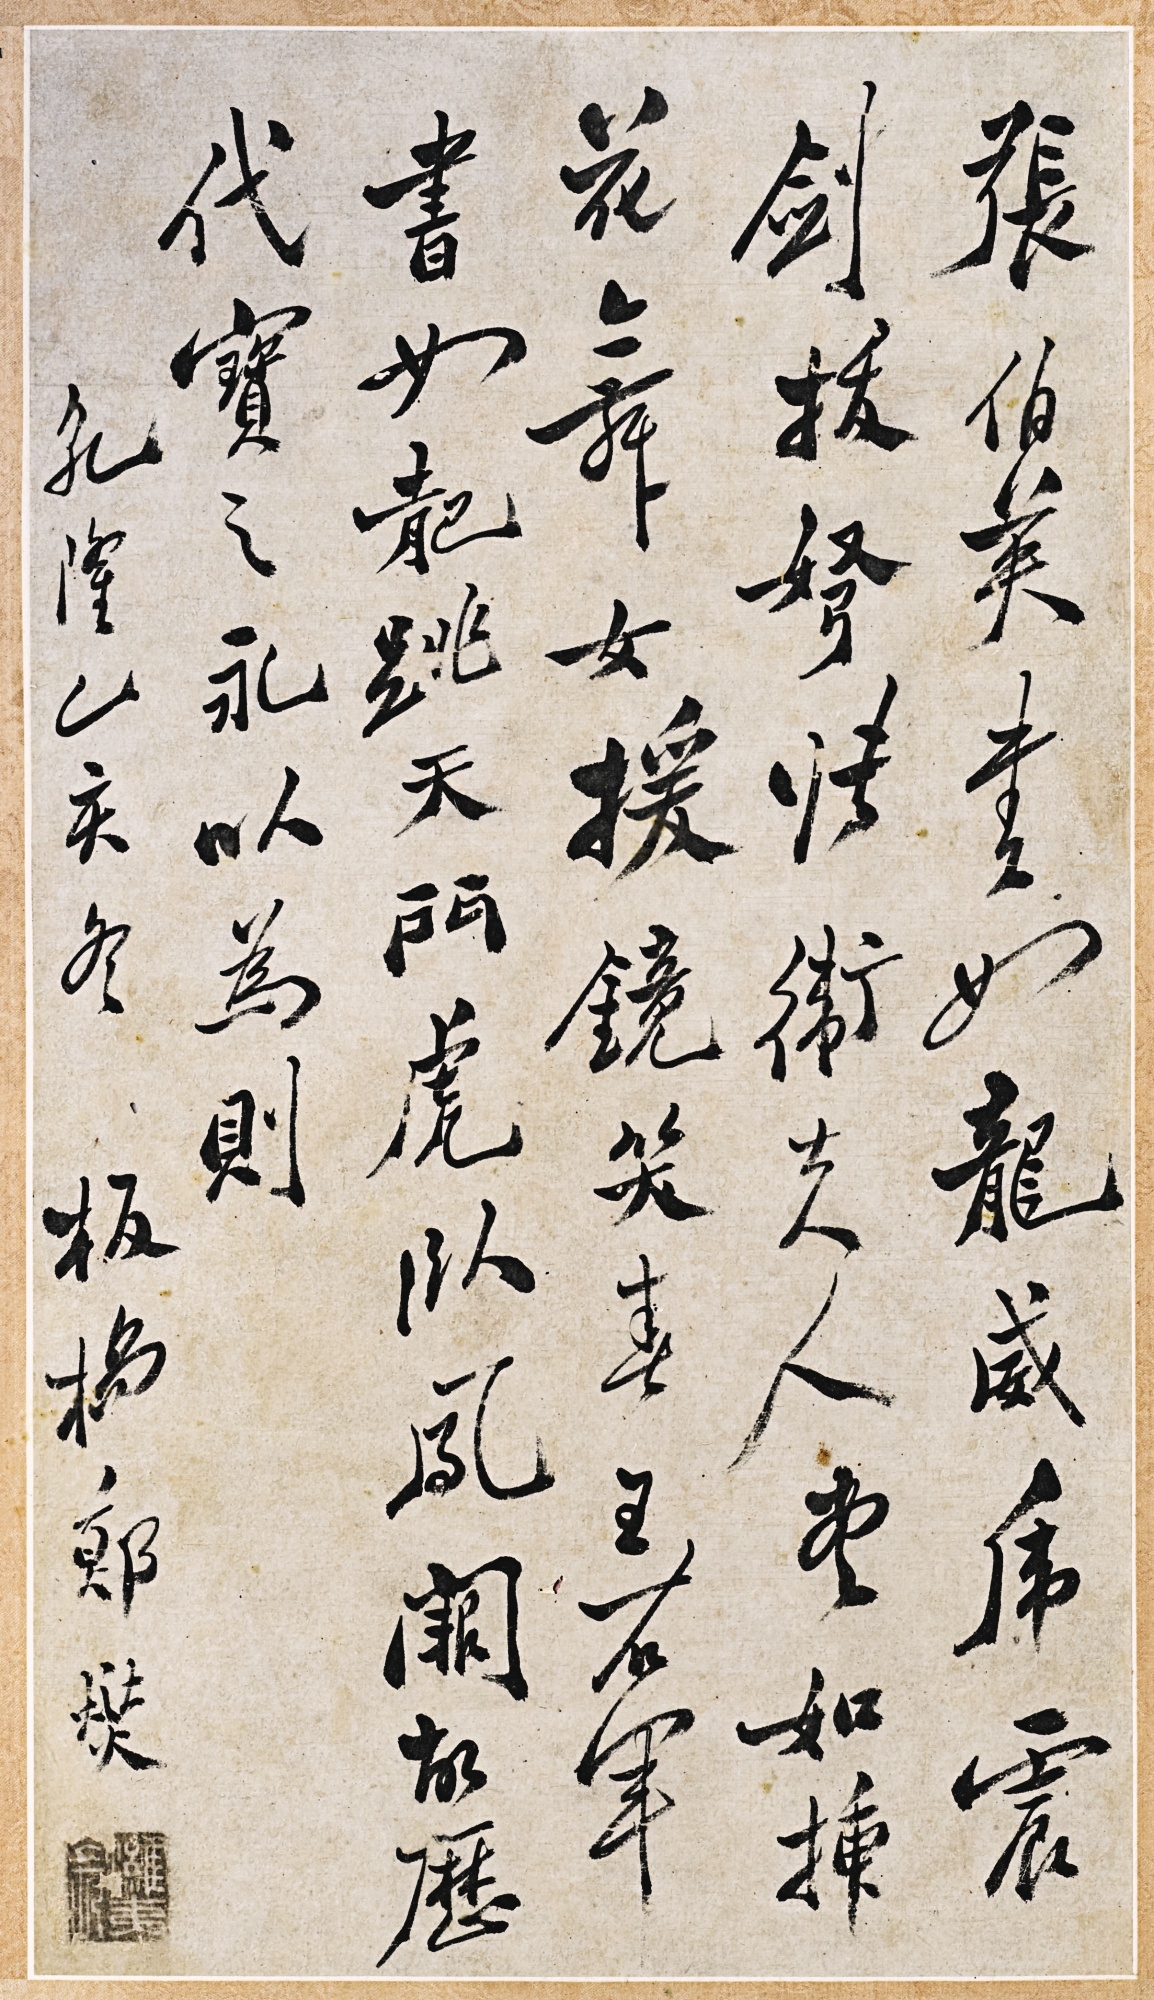 張伯英書如龍威虎震
劍拔弩張衛夫人書如插
花舞女援鏡笑春王右軍
書如龍跳天門虎臥鳳闕故歷
代寶之永以為則
乾隆乙亥冬 板橋鄭燮